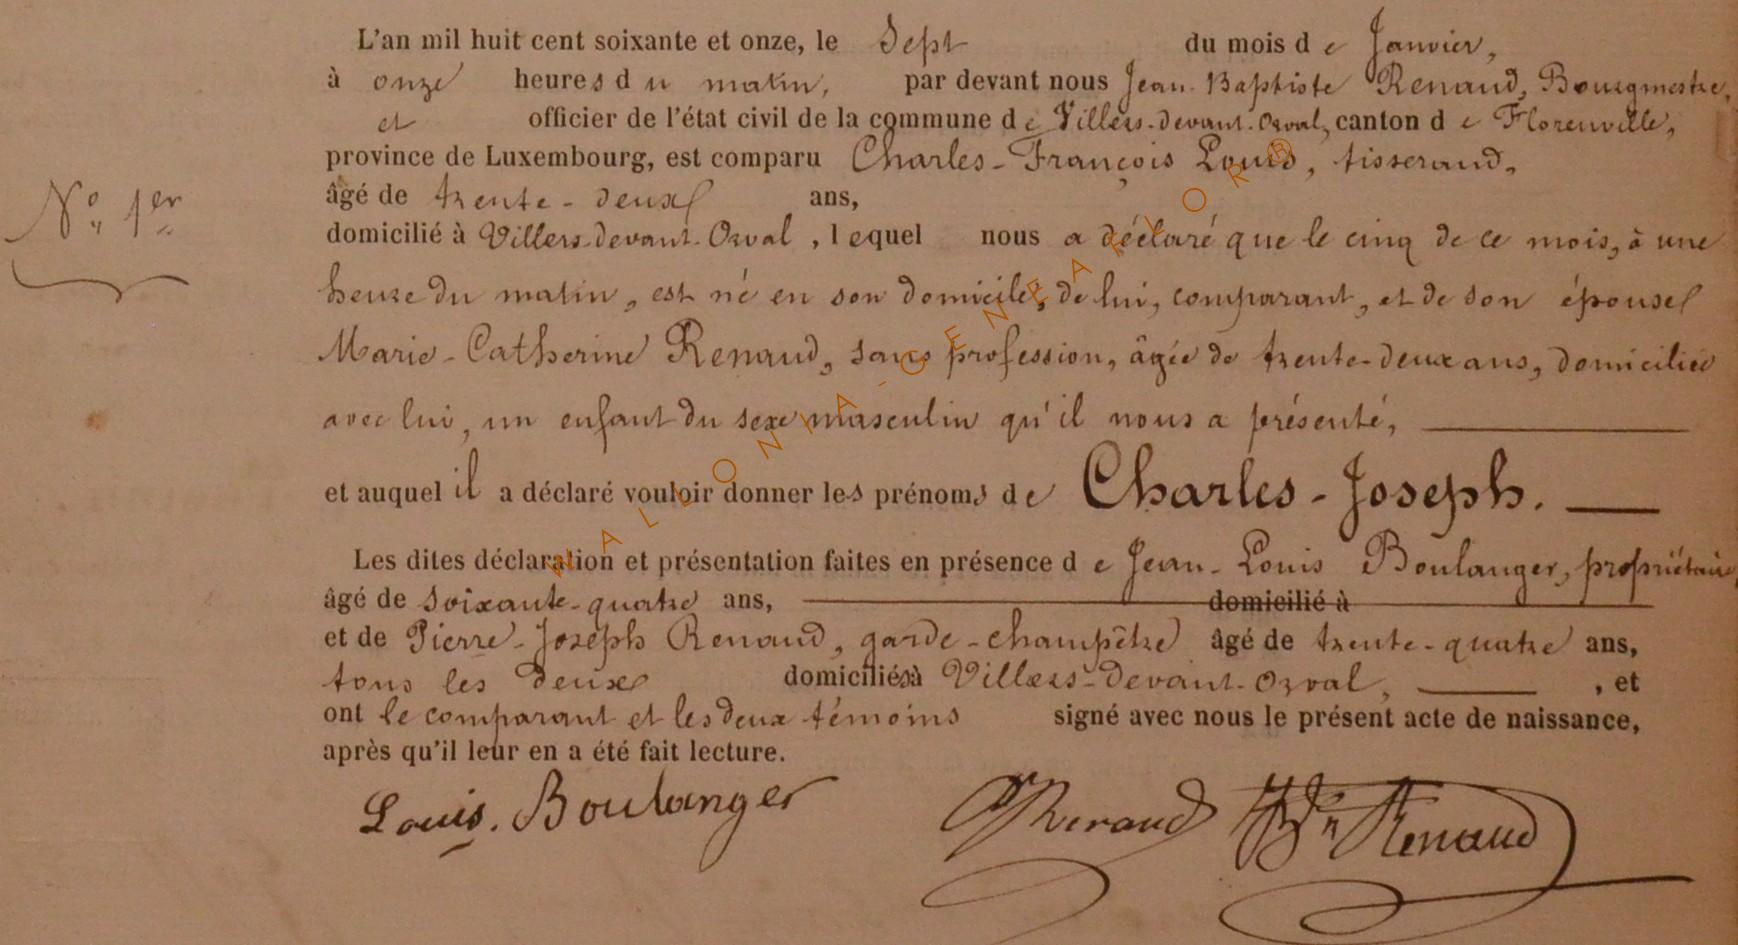 L'an mil huit cent soixante et onze, le Sept du mois de Janvier,
à onze heures du matin, par devant nous Jean-Baptiste Renaud, Bourgmestre,
et officier de l'état civil de la commune de Villers-devant-Orval, canton de Florenville,
province de Luxembourg, est comparu Charles-François Louis, tisserand,
âgé de trente-deux ans,
N° 1er
domicilié à Villers-devant-Orval, lequel nous a déclaré que le cinq de ce mois, à une
heure du matin, est né en son domicile, de lui, comparant, et de son épouse
Marie-Catherine Renaud, sans profession, âgée de trente-deux ans, domiciliée
avec lui, un enfant du sexe masculin qu'il nous a présenté,
et auquel il a déclaré vouloir donner les prénoms de Charles-Joseph.
Les dites déclaration et présentation faites en présence de Jean-Louis Boulanger, propriétaire,
âgé de soixante-quatre ans, domicilié à
et de Pierre-Joseph Renaud, garde-champêtre âgé de trente-quatre ans,
tous les deux domiciliés à Villers-devant-Orval, , et
ont le comparant et les deux témoins signé avec nous le présent acte de naissance,
après qu'il leur en a été fait lecture.
Louis. Boulanger Renaud Renaud
WALLONIA-GENEALO.ORB